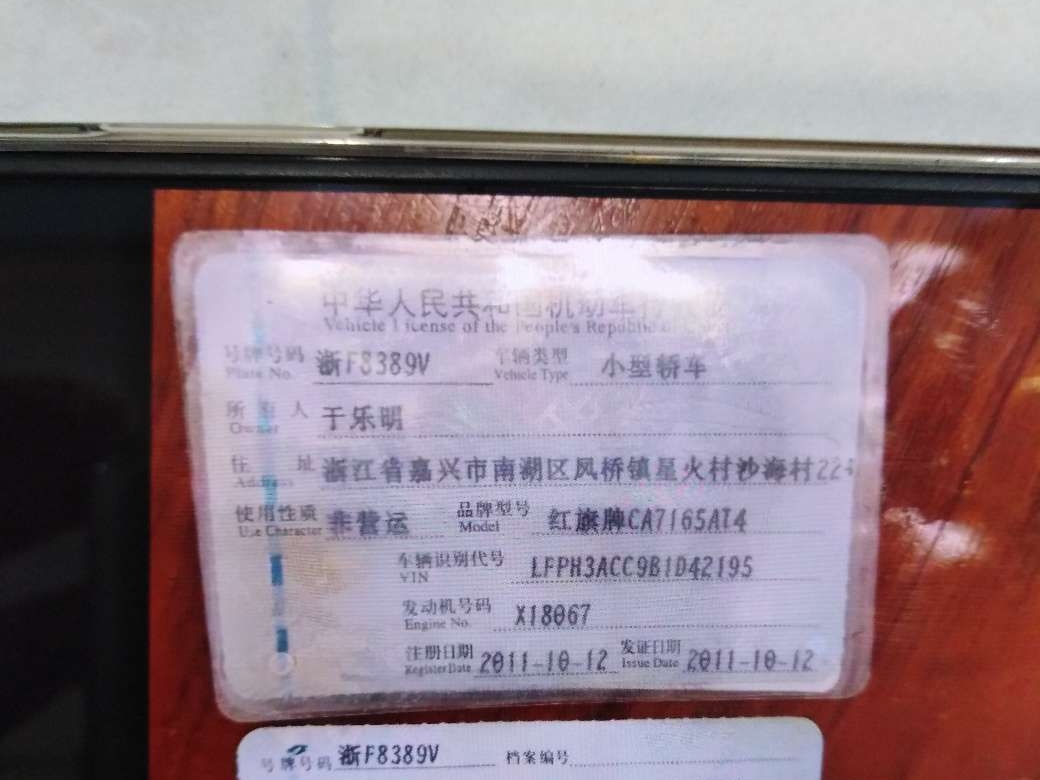 中华人民共和国机动车行驶证
Vehicle License of the People's Republic of China
号牌号码 浙F8389V 车辆类型 小型轿车
Plate No. Vehicle Type
所有人 于乐明
Owner
住址 浙江省嘉兴市南湖区凤桥镇星火村沙海村22
Address
使用性质 非营运 品牌型号 红旗牌CA7165AT4
Use Character Model
车辆识别代号 LFPH3ACC9B1D42195
VIN
发动机号码 X18067
Engine No.
注册日期 2011-10-12 发证日期 2011-10-12
Register Date Issue Date
号牌号码 浙F8389V 档案编号